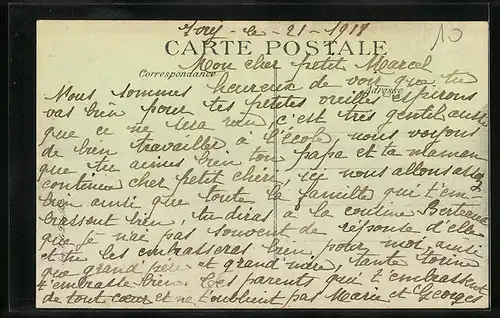 Ivry - le - 21 - 1918
10
CARTE POSTALE
Mon cher petit Marcel
Correspondance
Adresse
Nous sommes heureux de voir que tu
vas bien pour tes petites oreilles espérons
que ce ne sera rien, c'est très gentil aussi
de bien travailler à l'école, nous voyons
que tu aimes bien ton papa et ta maman
continue cher petit chéri, ici nous allons assez
bien ainsi que toute la famille qui t'em-
brassent bien, tu diras à la cousine Berteaux
que je n'ai pas souvent de réponse d'elle
et tu les embrasseras bien pour moi ainsi
que grand père et grand mère, tante
t'embrasse bien. Tes parents qui t'embrassent
de tout cœur et ne t'oublient pas Marie et Georges